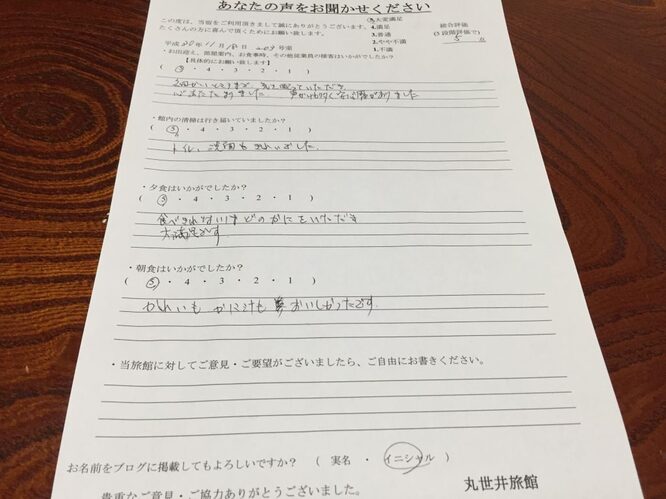 あなたの声をお聞かせください
この度は、当宿をご利用頂きまして誠にありがとうございます。
たくさんの方に喜んで頂くためにお願い致します。
5.大変満足
4.満足
3.普通
2.やや不満
1.不満
総合評価
(5段階評価で)
5 点
平成 30年 11月 18日 209号室
・お出迎え、部屋案内、お食事時、その他従業員の接客はいかがでしたか?
【具体的にお願い致します】
( 5 ・ 4 ・ 3 ・ 2 ・ 1 )
細かいところまで 気を配っていただき
心あたたまりました
・館内の清掃は行き届いていましたか?
( 5 ・ 4 ・ 3 ・ 2 ・ 1 )
トイレ、洗面もきれいでした。
・夕食はいかがでしたか?
( 5 ・ 4 ・ 3 ・ 2 ・ 1 )
食べきれないほどのかにをいただき
大満足です。
・朝食はいかがでしたか?
( 5 ・ 4 ・ 3 ・ 2 ・ 1 )
かれいも かに汁も おいしかったです。
・当旅館に対してご意見・ご要望がございましたら、ご自由にお書きください。
お名前をブログに掲載してもよろしいですか? ( 実名 ・ イニシャル )
貴重なご意見・ご協力ありがとうございました。
丸世井旅館